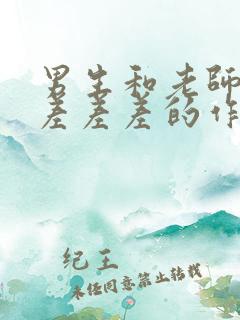 男生和老师
差差差的作
纪王
未经同意禁止转载